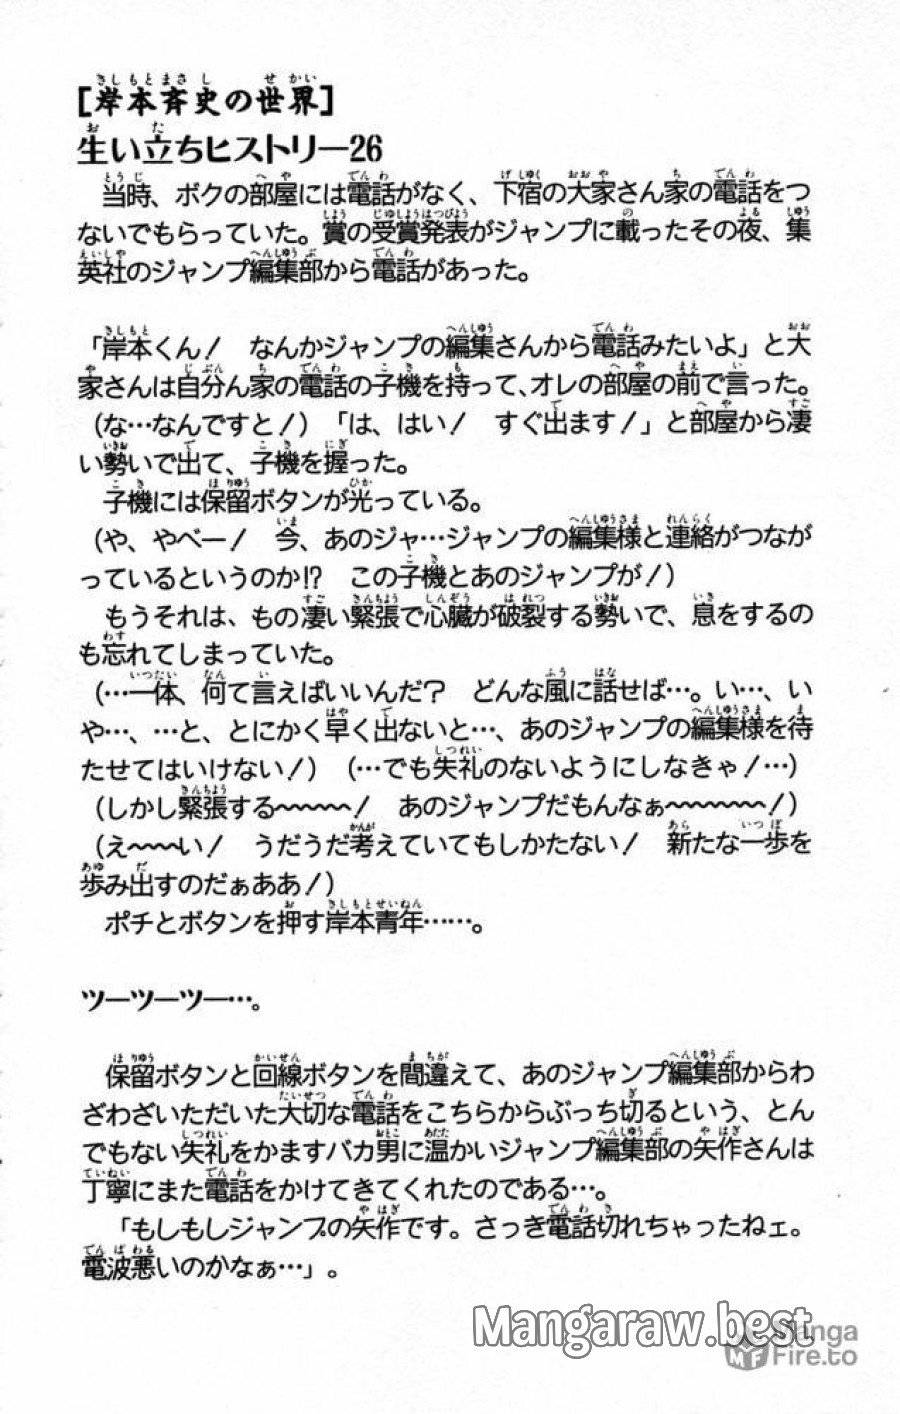 [岸本斉史の世界]
生い立ちヒストリー26
当時、ボクの部屋には電話がなく、下宿の大家さん家の電話をつ
ないでもらっていた。賞の受賞発表がジャンプに載ったその夜、集
英社のジャンプ編集部から電話があった。
「岸本くん！　なんかジャンプの編集さんから電話みたいよ」と大
家さんは自分ん家の電話の子機を持って、オレの部屋の前で言った。
（な…なんですと！）「は、はい！　すぐ出ます！」と部屋から凄
い勢いで出て、子機を握った。
子機には保留ボタンが光っている。
（や、やべー！　今、あのジャ…ジャンプの編集様と連絡がつなが
っているというのか!?　この子機とあのジャンプが！）
もうそれは、もの凄い緊張で心臓が破裂する勢いで、息をするの
も忘れてしまっていた。
（…一体、何て言えばいいんだ？　どんな風に話せば…。い…、い
や…、…と、とにかく早く出ないと…、あのジャンプの編集様を待
たせてはいけない！）（…でも失礼のないようにしなきゃ！…）
（しかし緊張する〜〜〜〜〜！　あのジャンプだもんなぁ〜〜〜〜〜〜！）
（え〜〜〜い！　うだうだ考えていてもしかたない！　新たな一歩を
歩み出すのだぁああ！）
ポチとボタンを押す岸本青年……。
ツーツーツー…。
保留ボタンと回線ボタンを間違えて、あのジャンプ編集部からわ
ざわざいただいた大切な電話をこちらからぶっち切るという、とん
でもない失礼をかますバカ男に温かいジャンプ編集部の矢作さんは
丁寧にまた電話をかけてきてくれたのである…。
「もしもしジャンプの矢作です。さっき電話切れちゃったねェ。
電波悪いのかなぁ…」。
Mangaraw.best
Manga
Fire.to
MF